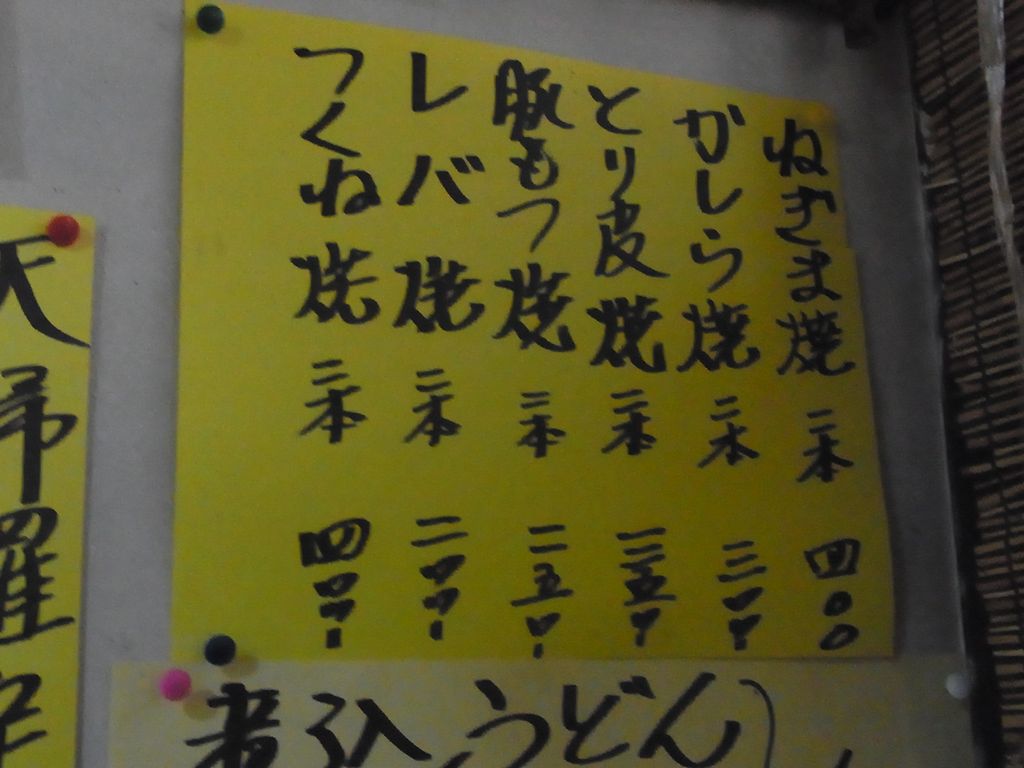 ねぎま焼 二本 四〇〇
がしら焼 二本 三〇〇
とり皮焼 二本 二五〇
豚もつ焼 二本 二五〇
レバ焼 二本 二〇〇
つくね焼 二本 四〇〇
煮込うどん
天婦羅